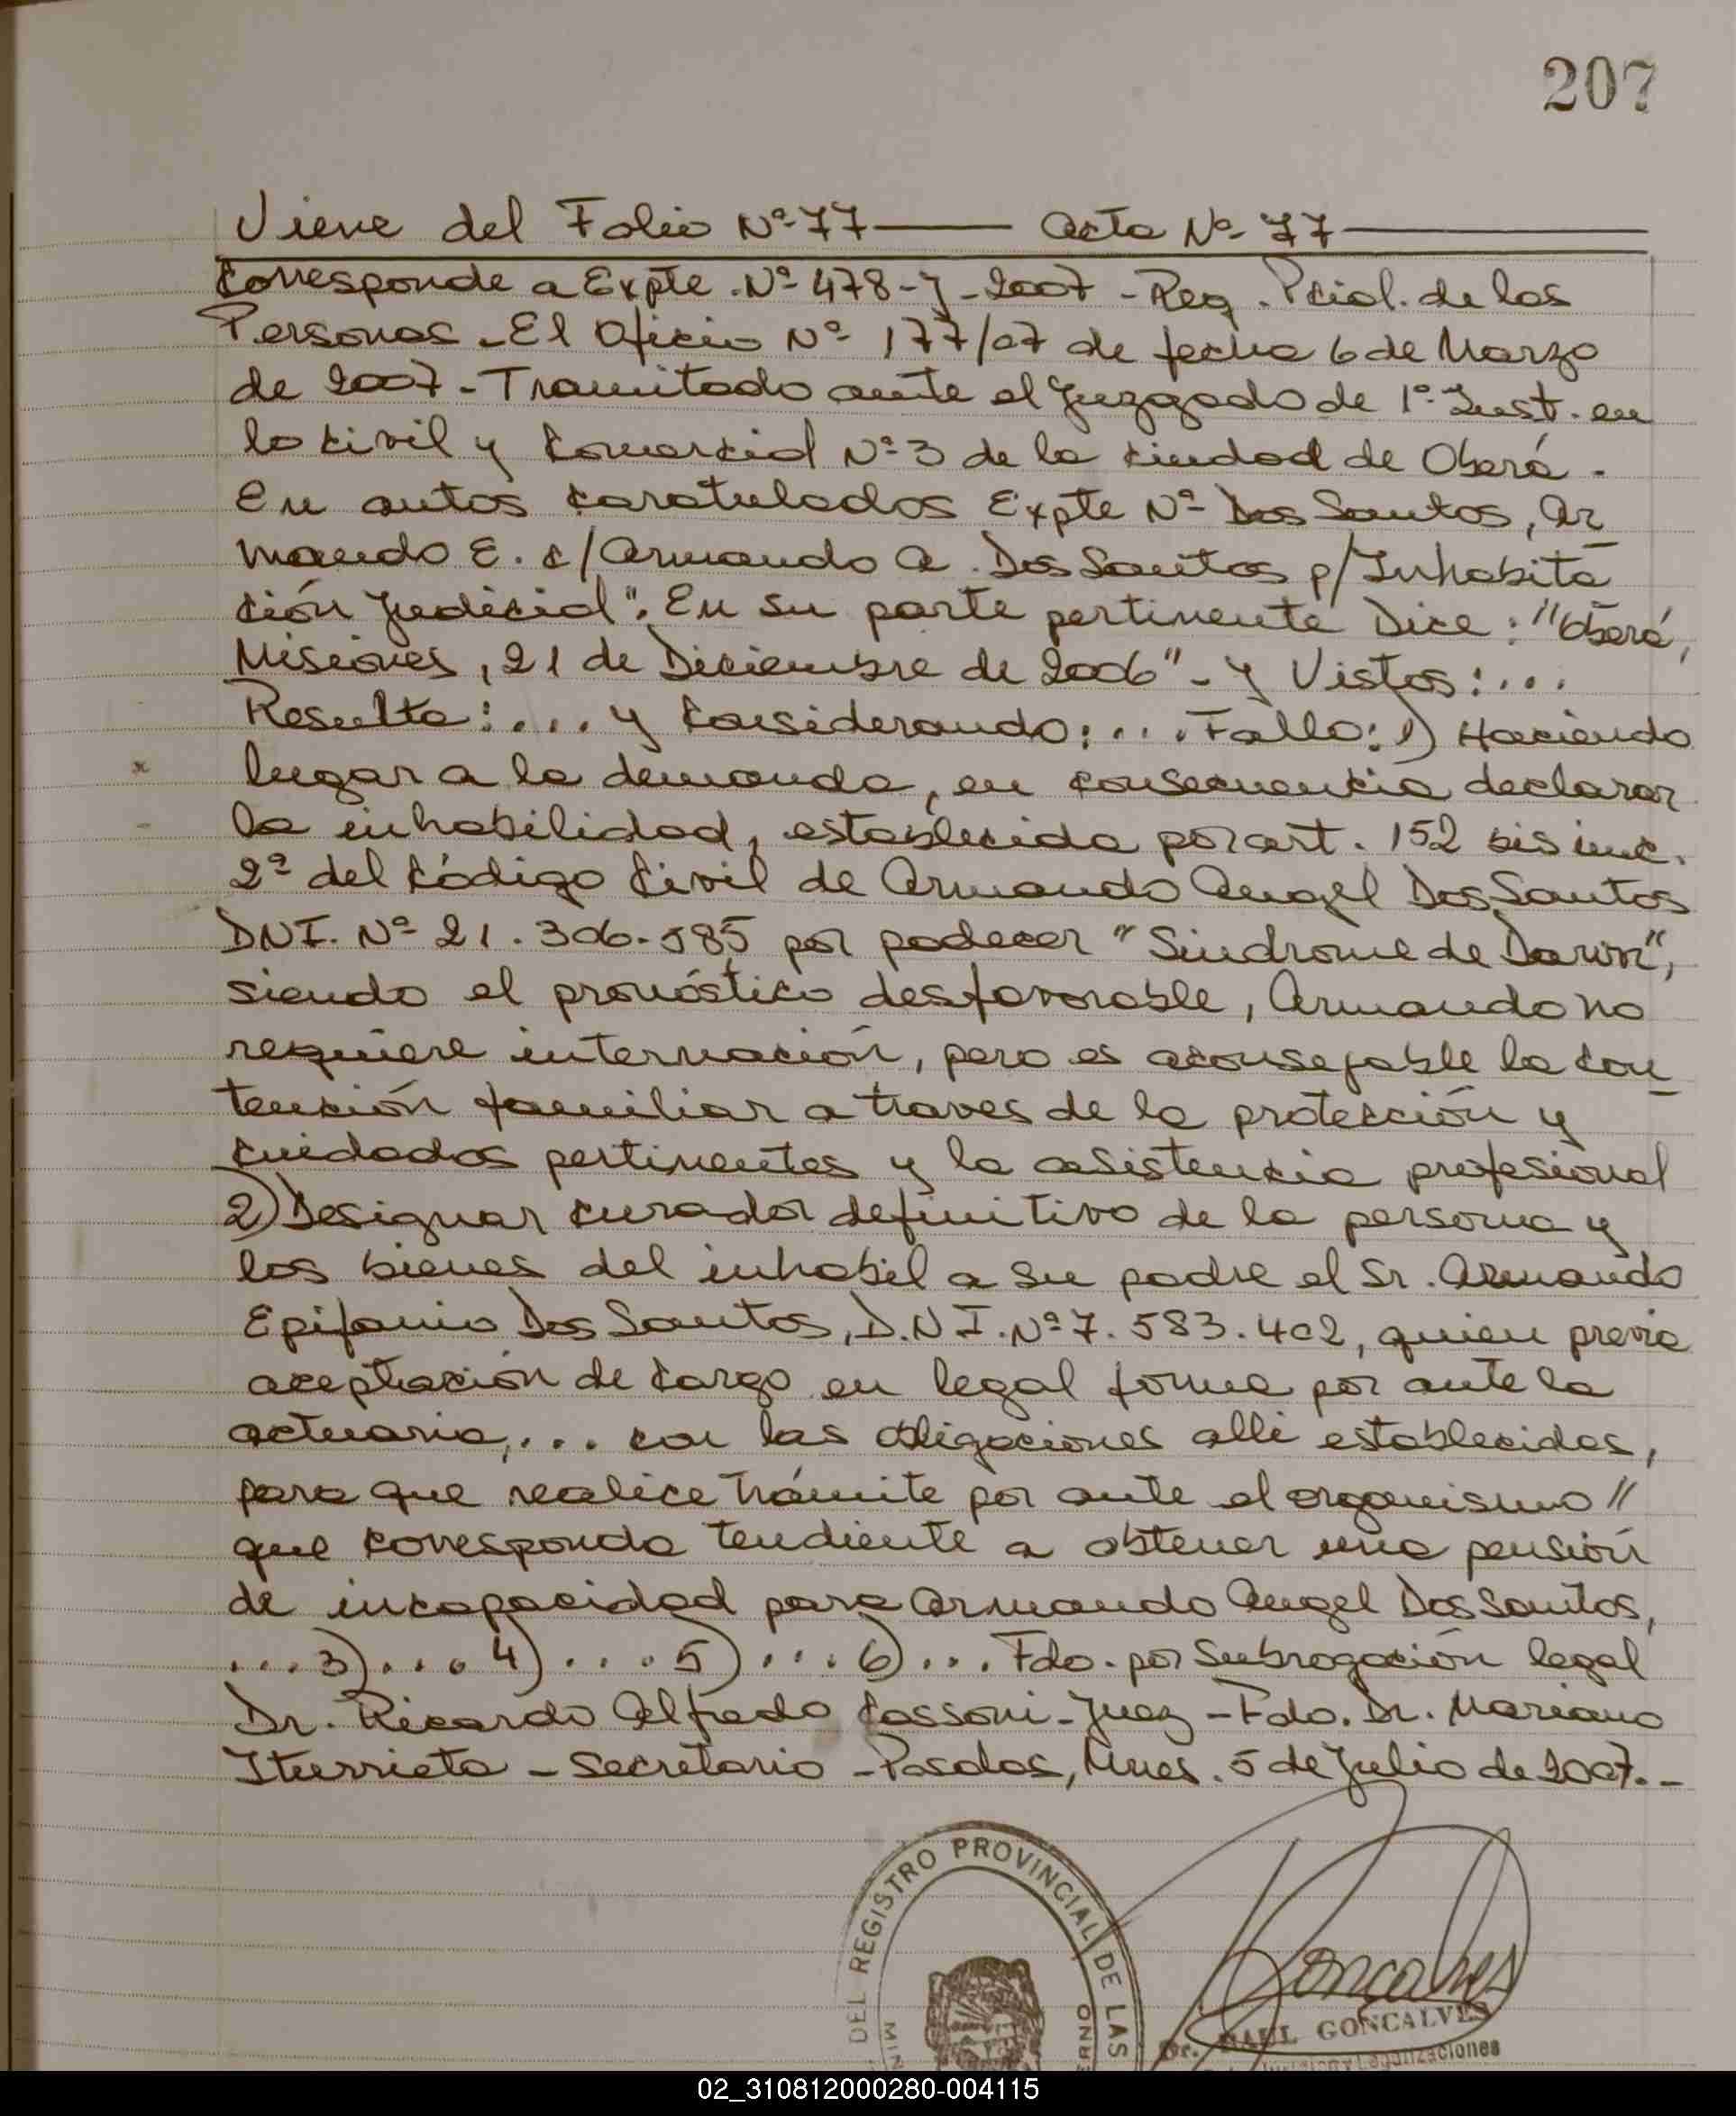 207
Viene del Folio Nº 77 —— Acta Nº 77 ——
Corresponde a Expte. Nº 478-J-2007 - Reg. Pcial. de las
Personas - El Oficio Nº 177/07 de fecha 6 de Marzo
de 2007 - Tramitado ante el Juzgado de 1º Inst. en
lo Civil y Comercial Nº 3 de la Ciudad de Oberá.
En autos Caratulados Expte Nº Dos Santos, Ar
mando E. c/ Armando A. Dos Santos p/Inhabita
ción Judicial". En su parte pertinente Dice: "Oberá,
Misiones, 21 de Diciembre de 2006" - y Vistos: ...
Resulta: .... y Considerando: .... Fallo: 1) Haciendo
lugar a la demanda, en consecuencia declarar
la inhabilidad, establecida por art. 152 bis inc.
2º del Código Civil de Armando Angel Dos Santos
DNI. Nº 21.306.585 por padecer "Sindrome de Down",
siendo el pronóstico desfavorable, Armando no
requiere internación, pero es aconsejable la con
tención familiar a traves de la protección y
cuidados pertinentes y la asistencia profesional
2) Designar curador definitivo de la persona y
los bienes del inhabil a su padre el Sr. Armando
Epifanio Dos Santos, D.N.I. Nº 7.583.402, quien previa
aceptación de cargo en legal forma por ante la
actuaria, ... con las obligaciones alli establecidas,
para que realice trámite por ante el organismo //
que corresponda tendiente a obtener una pensión
de incapacidad para Armando Angel Dos Santos,
... 3) .... 4) .... 5) .... 6) ... Fdo. por Subrogación legal
Dr. Ricardo Alfredo Cassoni - Juez - Fdo. Dr. Mariano
Iturrieta - Secretario - Posadas, Mnes. 5 de Julio de 2007.-
DEL REGISTRO PROVINCIAL DE LAS
Goncalves
Dr. RAUL GONCALVES
y Legalizaciones
02_310812000280-004115